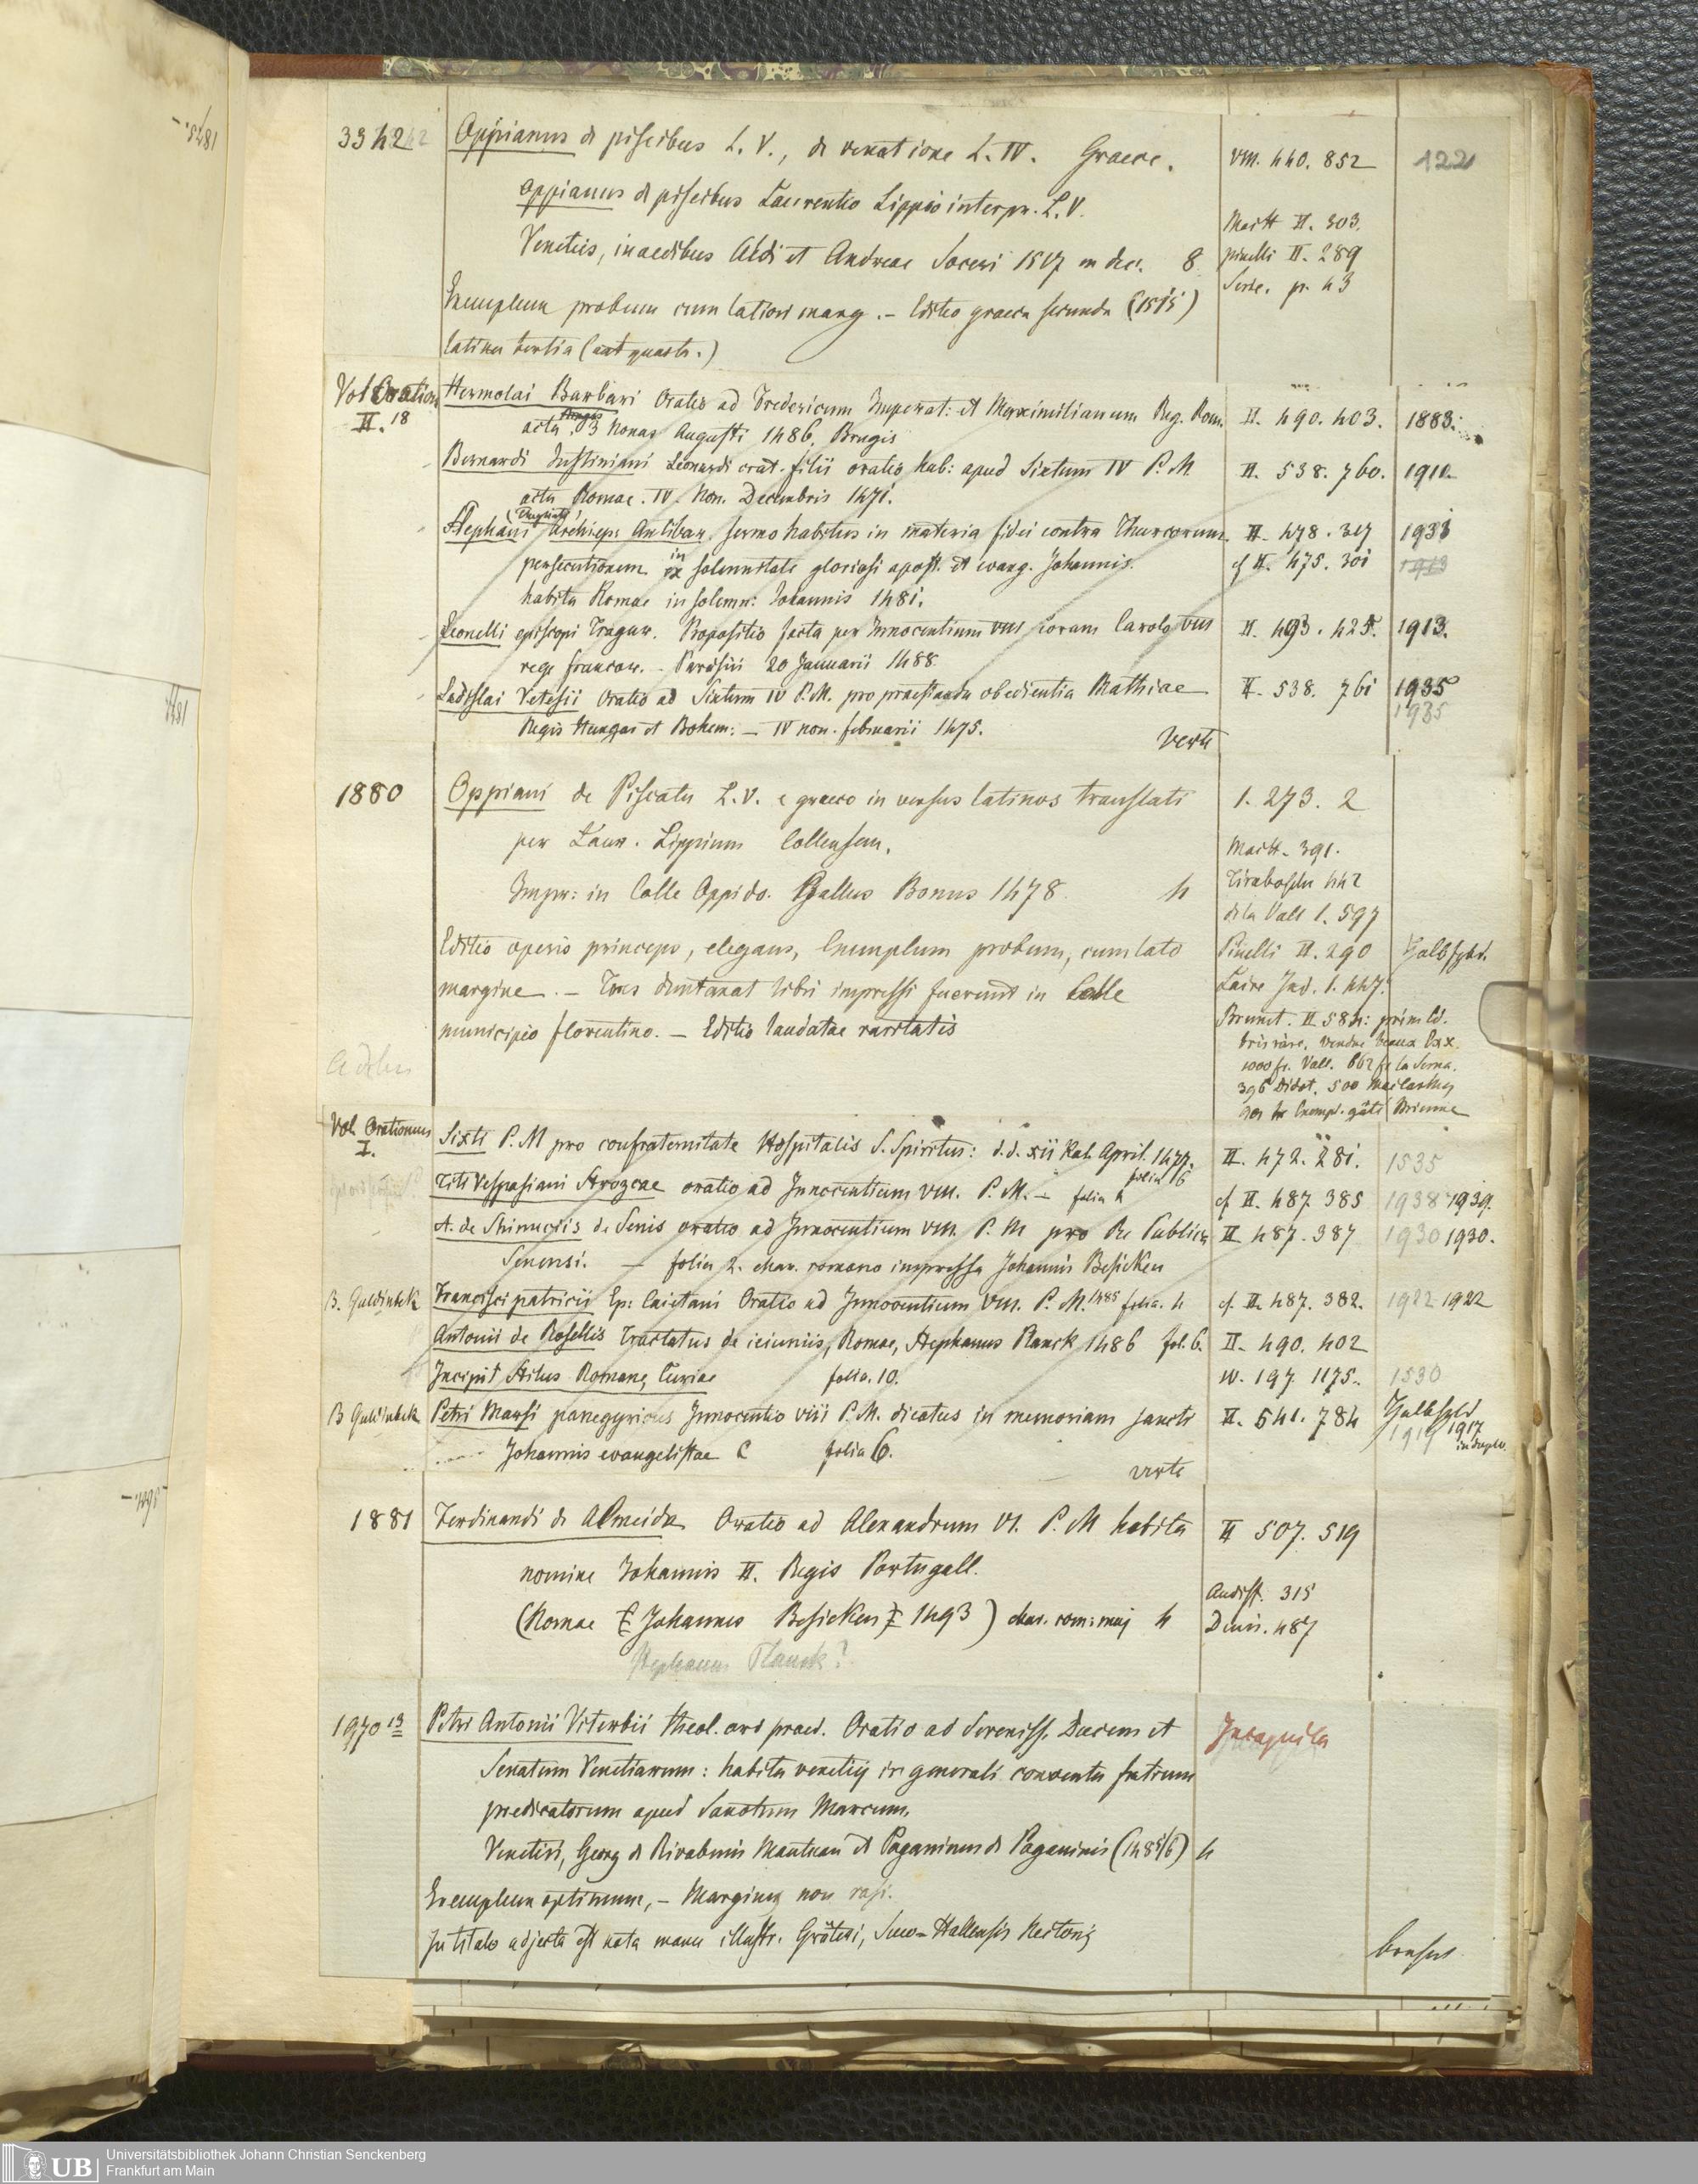 3342
Oppianus de piscibus L. V., de venatione L. IV. Graece.
VIII. 440. 852
1221
Oppianus de piscibus Laurentio Lippio interpr. L. V.
Maitt II. 303.
Venetiis, in aedibus Aldi et Andreae Soceri 1517 m dec. 8
pinelli II. 289
Serie. p. 43
Exemplum probum cum latiori marg. – Editio graeca secunda (1515)
latina tertia (aut quarta.)
Vol Oration
II. 18
Hermolai Barbari Oratio ad Fredericum Imperat: et Maximilianum Reg. Rom.
II. 490. 403.
1883.
acta Nonas Augusti 1486, Brugis
Bernardi Justiniani Leonardi orat. filii oratio hab: apud Sixtum IV P. M
II. 538. 760.
1910.
acta Romae. IV. Non. Decembris 1471.
Stephani Archiep. Antibar. sermo habitus in materia fidei contra Thurcorum
II. 478. 317
1933
persecutionem in solennitate gloriosi apost. et evang. Johannis.
cf II. 475. 301
habita Romae in solemn: Johannis 1481.
Leonelli episcopi Tragur. Propositio facta per Innocentium VIII coram Carolo VIII
II. 493. 425.
1913.
rege francor. – Parisiis 20 Januarii 1488
Ladislai Vetesii Oratio ad Sixtum IV P. M. pro praestanda obedientia Mathiae
II. 538. 761
1935
1935
Regis Hungar et Bohem: – IV non. februarii 1475.
verte
1880
Oppiani de Piscatu L. V. e graeco in versus latinos translati
1. 273. 2
per Laur. Lippium Collensem.
Maitt. 391.
Impr: in Colle Oppido. Gallus Bonus 1478. 4
Tiraboschi 442
de la Vall 1. 597
Editio operis princeps, elegans, Exemplum probum, cum lato
Pinelli II. 290
Halbfzbd.
margine. – Tres duntaxat libri impressi fuerunt in Colle
Laire Ind. 1. 447.
municipio florentino. – Editio laudatae raritatis
Brunet. II 584: prem Ed.
très rare, vendue beaux Exx.
1000 fr. Vall. 662 fr la Serna.
396 Didot. 500 MacCarthy
Exempl. gâté Brienne
Vol. Orationum
I.
Sixti P. M pro confraternitate Hospitalis S. Spiritus: d. d. xii Kal. April. 1477.
folia 6
II. 472. 281.
1535
Titi Vespasiani Strozae oratio ad Innocentium VIII. P. M. – folia 4
cf II. 487. 385
1938 1939.
A. de Senis oratio ad Innocentium VIII. P. M pro Re Publica
II 487. 387
1930 1930.
Senensi. – folia 2. char. romano impressa Johannis Besicken
B. Guldinbek
Francisci patricii Ep: Caietani Oratio ad Innocentium VIII. P. M. 1485 folia. 4
cf. II. 487. 382.
1922 1922
Antonii de Rosellis Tractatus de ieiuniis, Romae, Stephanus Planck 1486 fol. 6.
II. 490. 402
Incipit Stilus Romane Curiae folia. 10.
IV. 197. 1175.
1530
B Guldinbek
Petri Marsi panegyricus Innocentio VIII P. M. dicatus in memoriam sancti
II. 541. 784
Halbfzbd
1917
1917
in duplo
Johannis evangelistae folia 6.
verte
1881
Ferdinandi de Almeida Oratio ad Alexandrum VI. P. M habita
II 507. 519
nomine Johannis II. Regis Portugall.
Audiff. 315
(Romae Johannes Besicken 1493) char. rom: maj 4
Denis. 487
Stephanus Planck?
1970 13
Petri Antonii Viterbii theol. ord praed. Oratio ad Sereniss. Ducem et
Senatum Venetiarum: habita venetiis in generali conventu fratrum
predicatorum apud Sanctum Marcum.
Venetiis, Georg de Rivabenis Mantuan et Paganinus de Paganinis (1485/6) 4
Exemplum optimum, – Margines non rasi.
In titulo adjecta est nota manu illustr. Gräteri, Suevo-Hallensis Rectoris
Universitätsbibliothek Johann Christian Senckenberg
Frankfurt am Main
UB